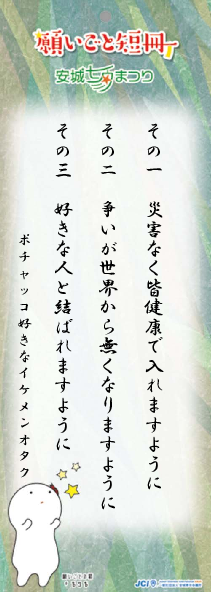 願いごと短冊
安城七夕まつり
その一　災害なく皆健康で入れますように
その二　争いが世界から無くなりますように
その三　好きな人と結ばれますように
ポチャッコ好きなイケメンオタク
JCI